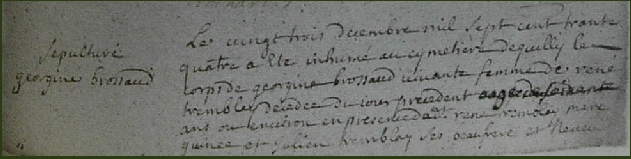 Sepulture
georgine brossaud
Le vingt trois decembre mil sept cent trante
quatre a ete inhumé au cymetiere de quilly le
corps de georgine brossaud vivante femme de rené
tremblay decedee du jour precedent aagee de soixante
ans ou environ en presence de rené tremblay
et julien tremblay ses beaufrere et neveu